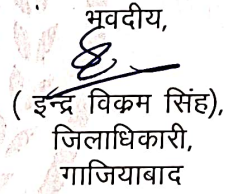 भवदीय,
( इन्द्र विक्रम सिंह),
जिलाधिकारी,
गाजियाबाद